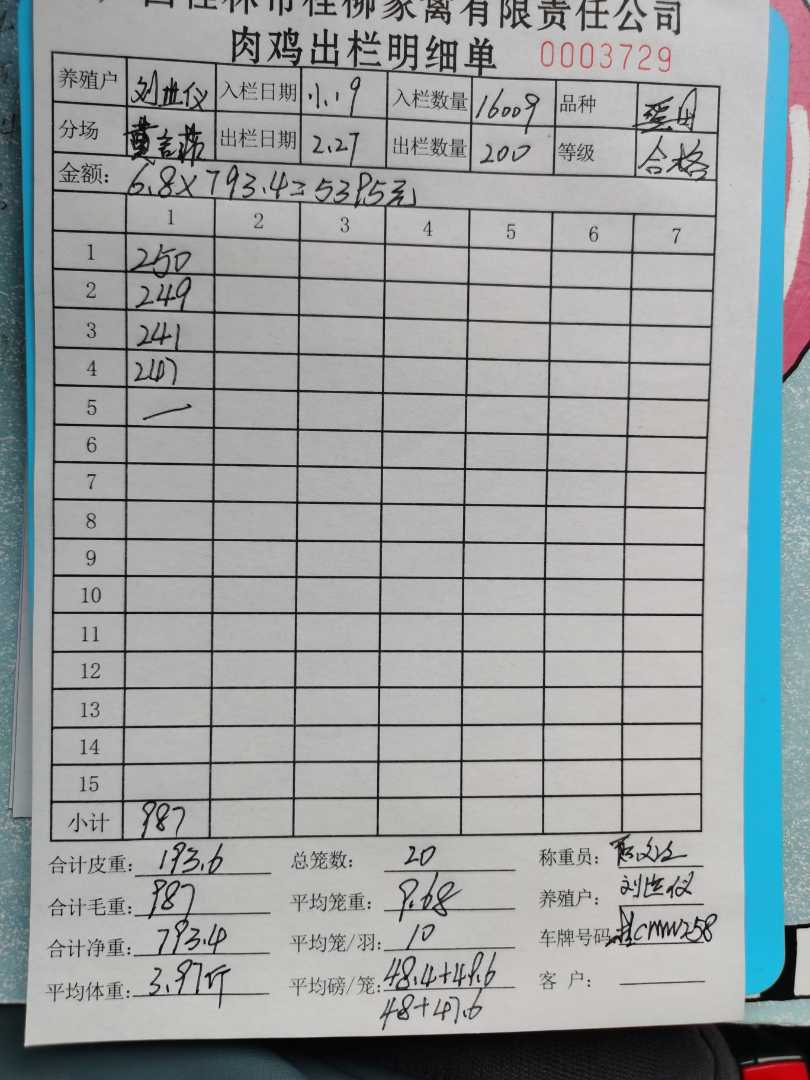 西桂林市桂柳家禽有限责任公司
肉鸡出栏明细单 0003729
养殖户 刘世仪 入栏日期 1.19 入栏数量 16009 品种
分场 出栏日期 2.27 出栏数量 200 等级 合格
金额: 6.8×793.4=5395元
1 2 3 4 5 6 7
1 250
2 249
3 241
4 247
5 —
6
7
8
9
10
11
12
13
14
15
小计 987
合计皮重: 193.6 总笼数: 20 称重员:
合计毛重: 987 平均笼重: 9.68 养殖户: 刘世仪
合计净重: 793.4 平均笼/羽: 10 车牌号码:
平均体重: 3.97斤 平均磅/笼: 48.4+49.6 客 户:
48+47.6